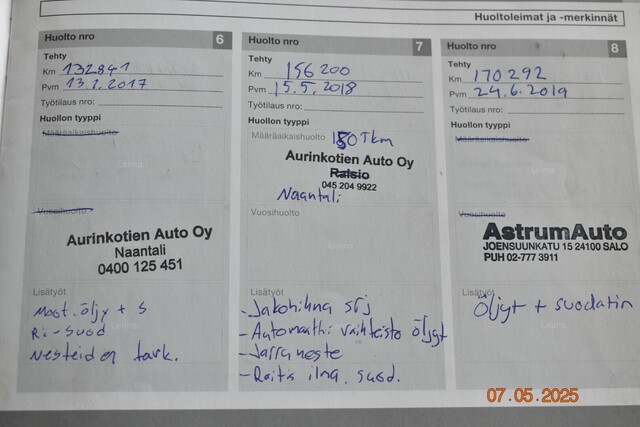 Huoltoleimat ja -merkinnät
Huolto nro 6
Tehty
Km 132841
Pvm 13.2.2017
Työtilaus nro:
Huollon tyyppi
Määräaikaishuolto
Leima
Vuosihuolto
Aurinkotien Auto Oy
Naantali
0400 125 451
Lisätyöt
Moot. öljy + s
Ri-suod
Nesteiden tark.
Huolto nro 7
Tehty
Km 156 200
Pvm 15.5.2018
Työtilaus nro:
Huollon tyyppi
Määräaikaishuolto 150 Tkm
Aurinkotien Auto Oy
Raisio
045 204 9922
Naantali
Vuosihuolto
Leima
Lisätyöt
- Jakohihna srj
- Automaatti vaihteisto öljyt
- Jarruneste
- Raitis ilma. suod.
Huolto nro 8
Tehty
Km 170 292
Pvm 24.6.2019
Työtilaus nro:
Huollon tyyppi
Määräaikaishuolto
Leima
Vuosihuolto
AstrumAuto
JOENSUUNKATU 15 24100 SALO
PUH 02-777 3911
Lisätyöt
Öljyt + suodatin
Leima
07.05.2025